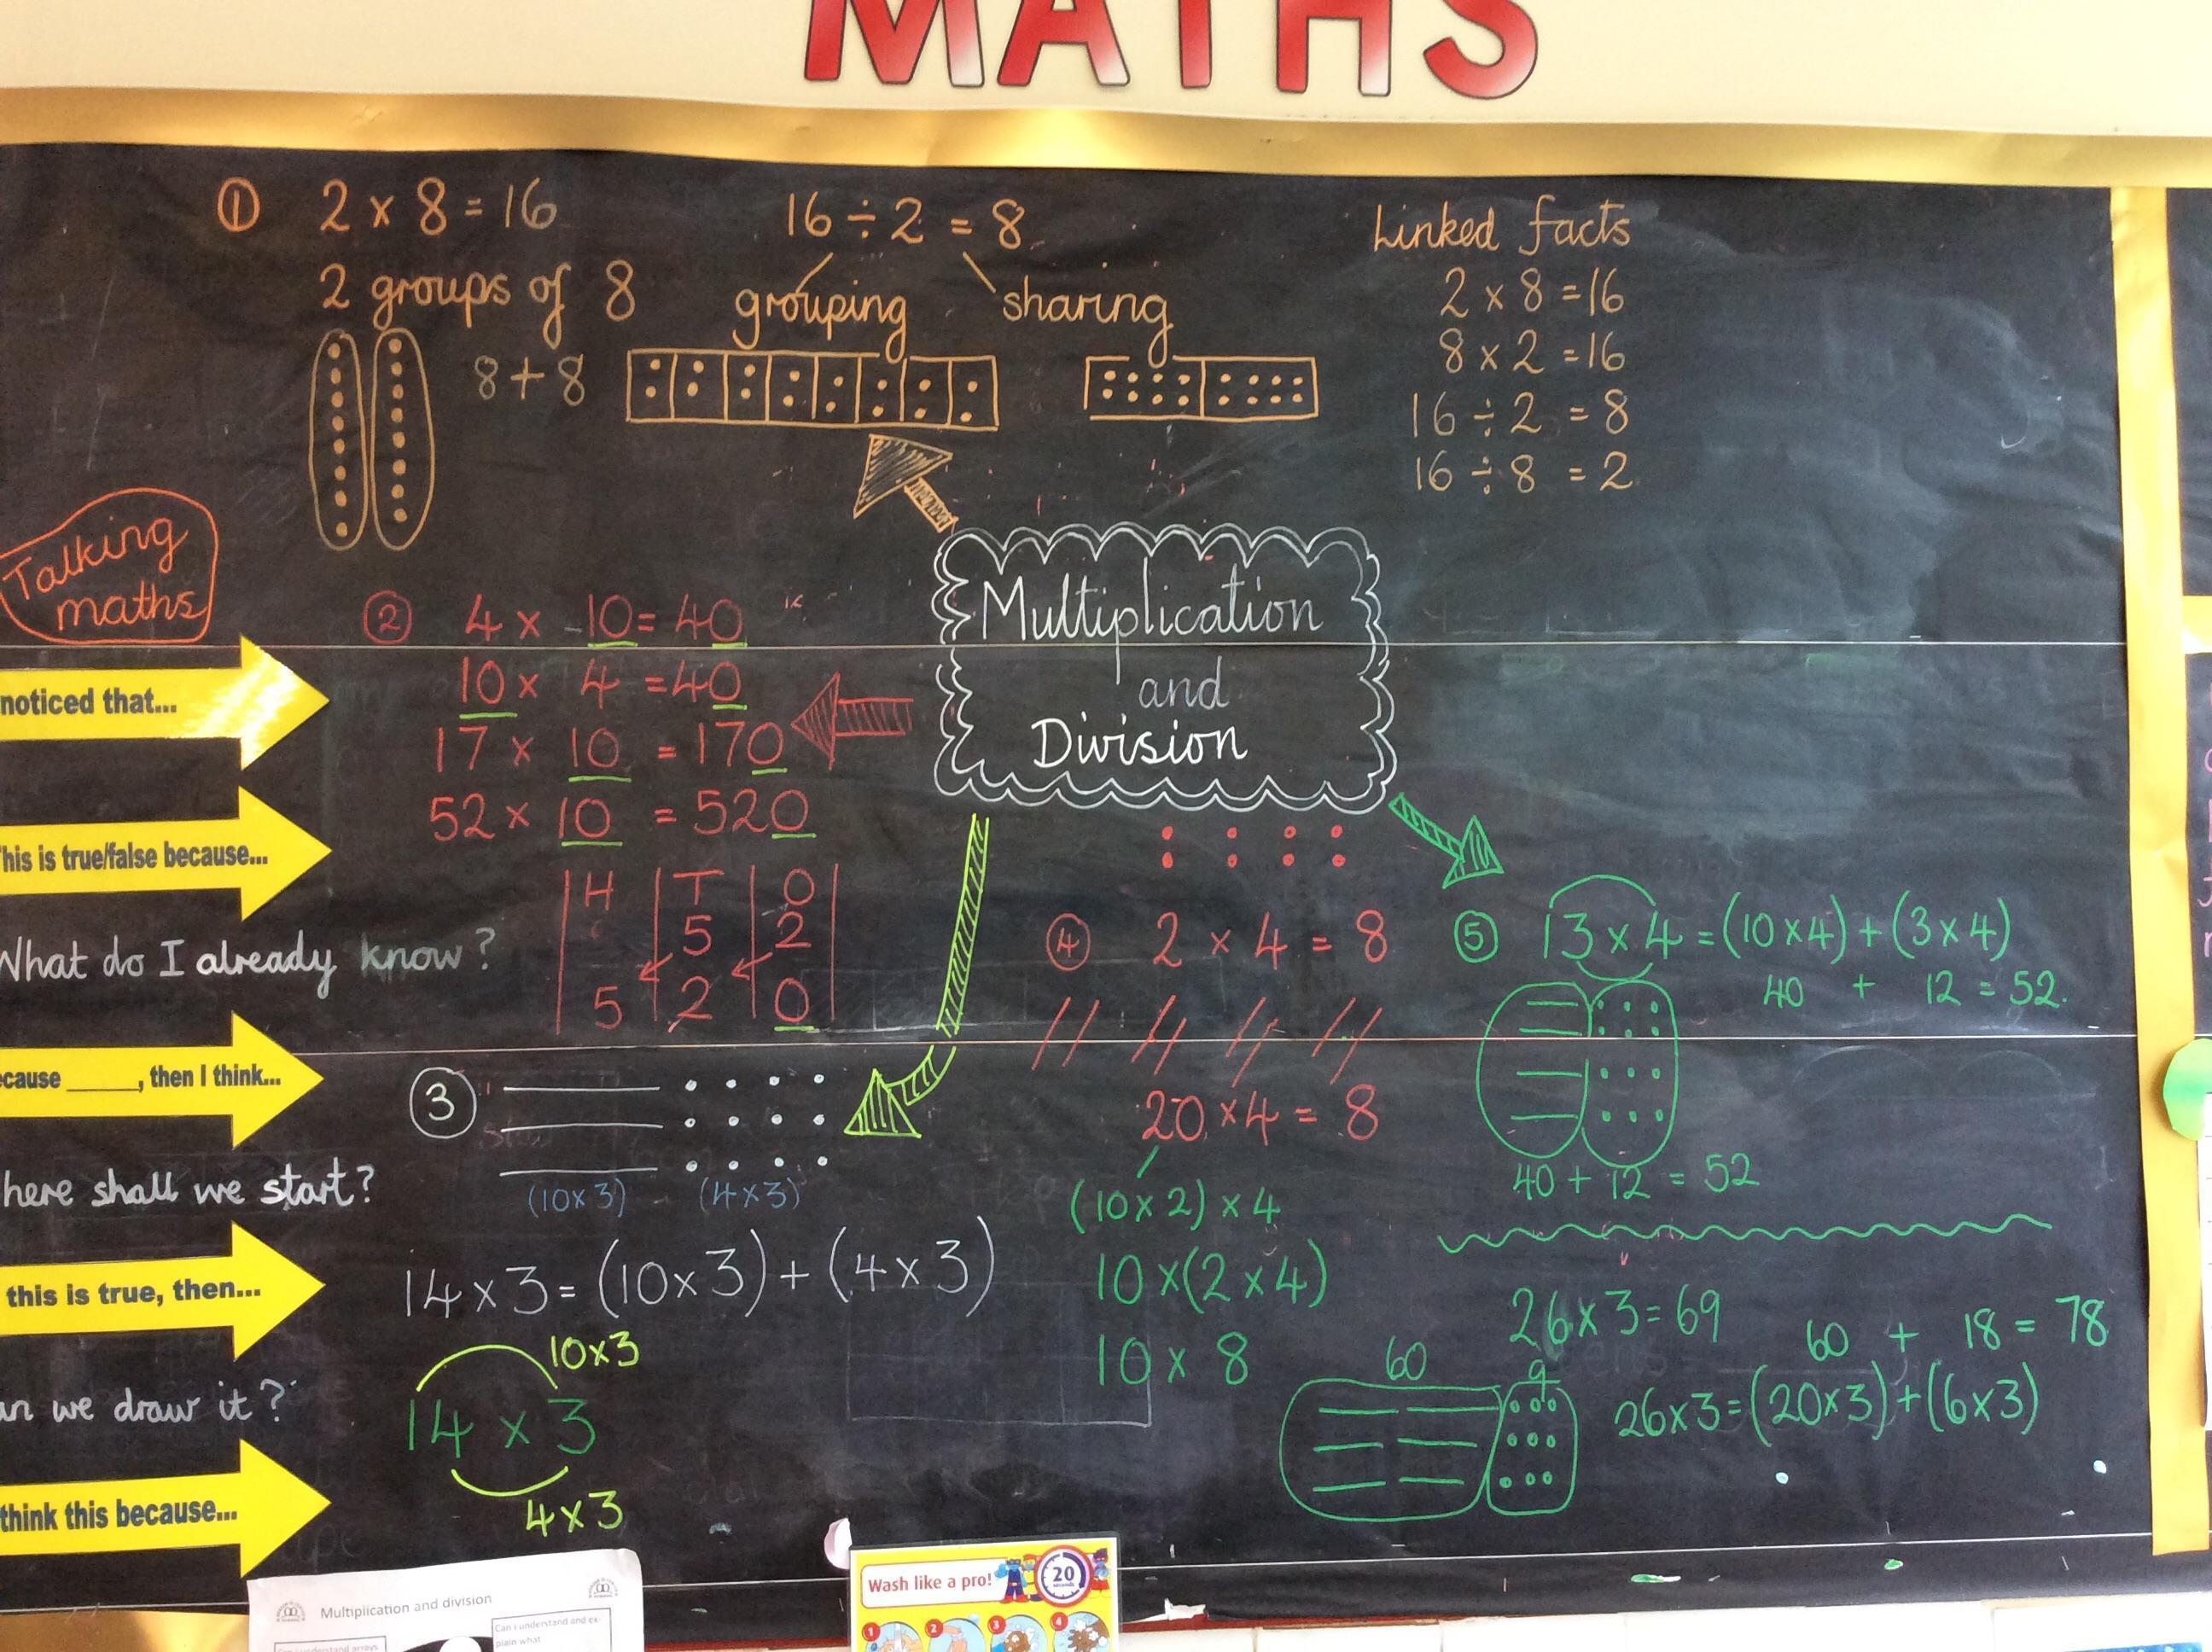 MATHS
① 2 × 8 = 16
2 groups of 8
8 + 8
16 ÷ 2 = 8
grouping sharing
Linked facts
2 × 8 = 16
8 × 2 = 16
16 ÷ 2 = 8
16 ÷ 8 = 2
Talking
maths
noticed that...
his is true/false because...
What do I already know?
cause _____, then I think...
here shall we start?
this is true, then...
an we draw it?
think this because...
Multiplication
and
Division
② 4 × 10 = 40
10 × 4 = 40
17 × 10 = 170
52 × 10 = 520
H T O
5 2
5 2 0
③
(10×3) (4×3)
14 × 3 = (10×3) + (4×3)
10×3
14 × 3
4×3
④ 2 × 4 = 8
20 × 4 = 8
(10×2) × 4
10 × (2×4)
10 × 8
⑤ 13 × 4 = (10×4) + (3×4)
40 + 12 = 52.
40 + 12 = 52
26 × 3 = 69
60 9
60 + 18 = 78
26×3 = (20×3) + (6×3)
Multiplication and division
Can I understand and ex
plain what
Can I understand arrays
Wash like a pro!
20
seconds
1 2 3 4